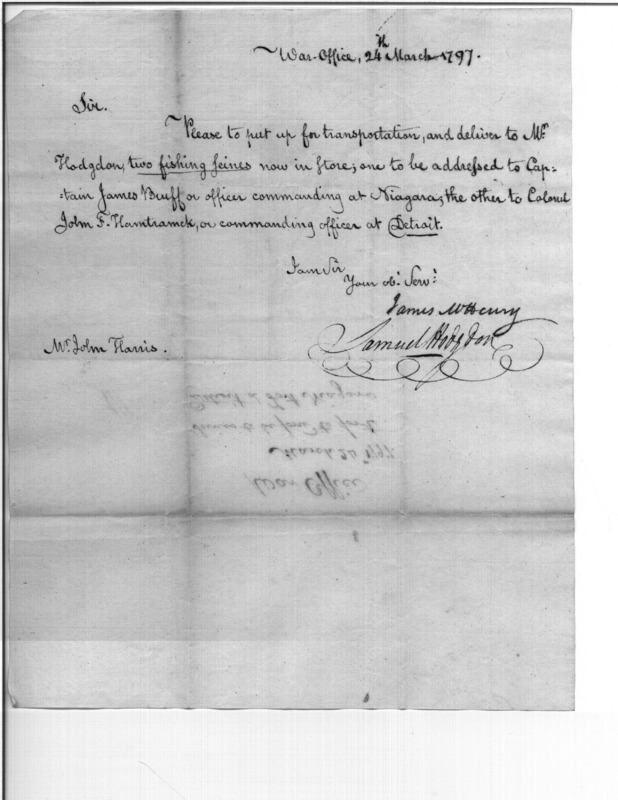 War-Office, 24th March 1797.
Sir.
Please to put up for transportation, and deliver to Mr.
Hodgdon, two fishing seines now in store; one to be addressed to Cap-
-tain James Bruff or officer commanding at Niagara; the other to Colonel
John F. Hamtramck, or commanding officer at Detroit.
I am Sir
Your obt. Servt.
James McHenry
Samuel Hodgdon
Mr. John Harris.
War Office
March 24th 1797
Detroit & Fort Niagara